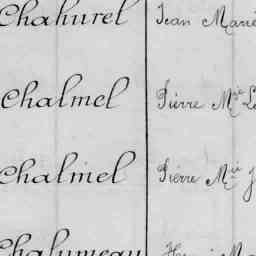 Chahurel Jean Marie
Chalmel Pierre Mie L
Chalmel Pierre Mie J
Chalumeau